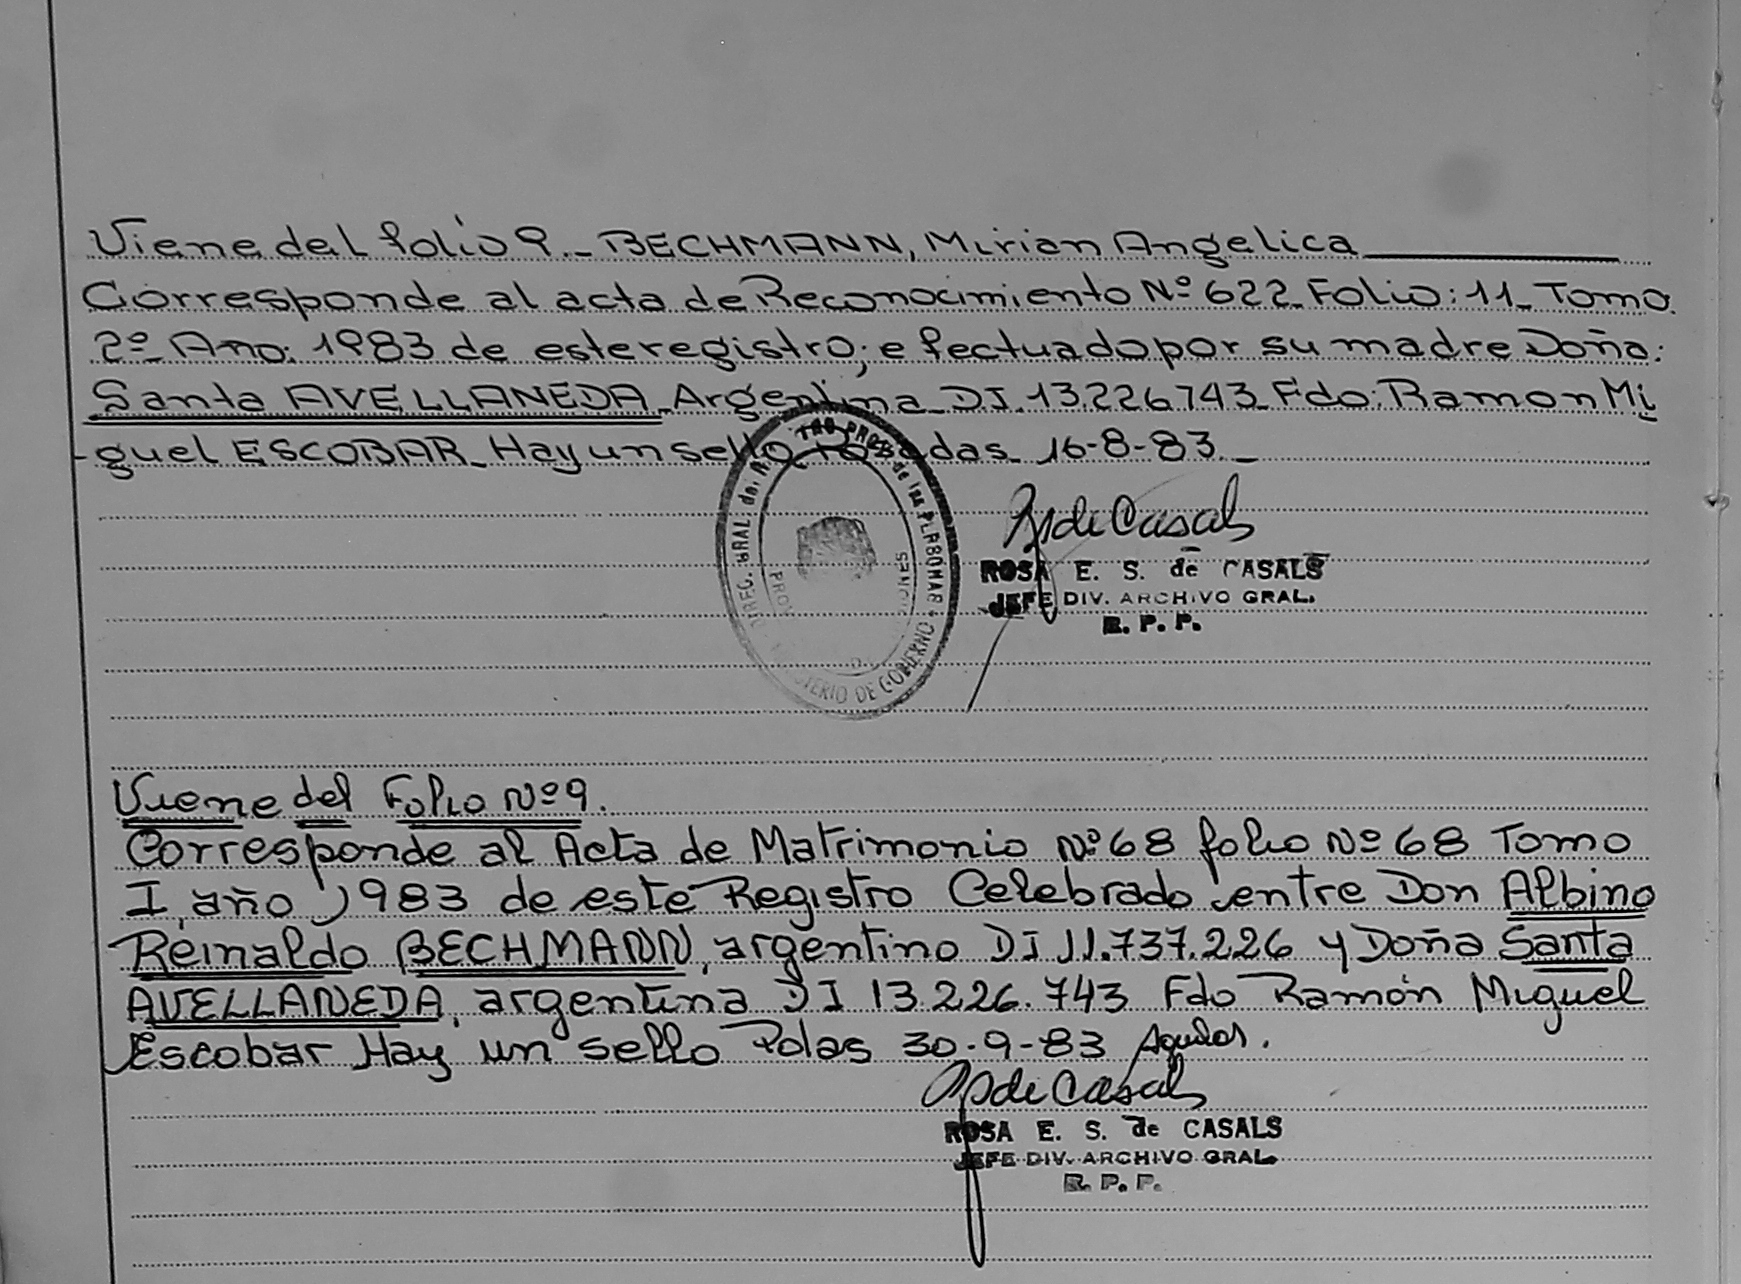 Viene del folio 9._ BECHMANN, Mirian Angelica
Corresponde al acta de Reconocimiento Nº 622_ Folio: 11_ Tomo
2º_ Ano: 1983 de este registro; efectuado por su madre Doña:
Santa AVELLANEDA_ Argentina_ DJ. 13.226.743_ Fdo: Ramon Mi
guel ESCOBAR_ Hay un sello Posadas_ 16-8-83._
DIREC. GRAL. de de las PERSONAS
MINISTERIO DE GOBIERNO
ROSA E. S. de CASALS
JEFE DIV. ARCHIVO GRAL.
R. P. P.
Viene del Folio Nº 9.
Corresponde al Acta de Matrimonio Nº 68 folio Nº 68 Tomo
I, año 1983 de este Registro Celebrado entre Don Albino
Reinaldo BECHMANN, argentino DI 11.737.226 y Doña Santa
AVELLANEDA, argentina DI 13.226.743 Fdo Ramón Miguel
Escobar Hay un sello Pdas 30-9-83
ROSA E. S. de CASALS
JEFE DIV. ARCHIVO GRAL.
R. P. P.